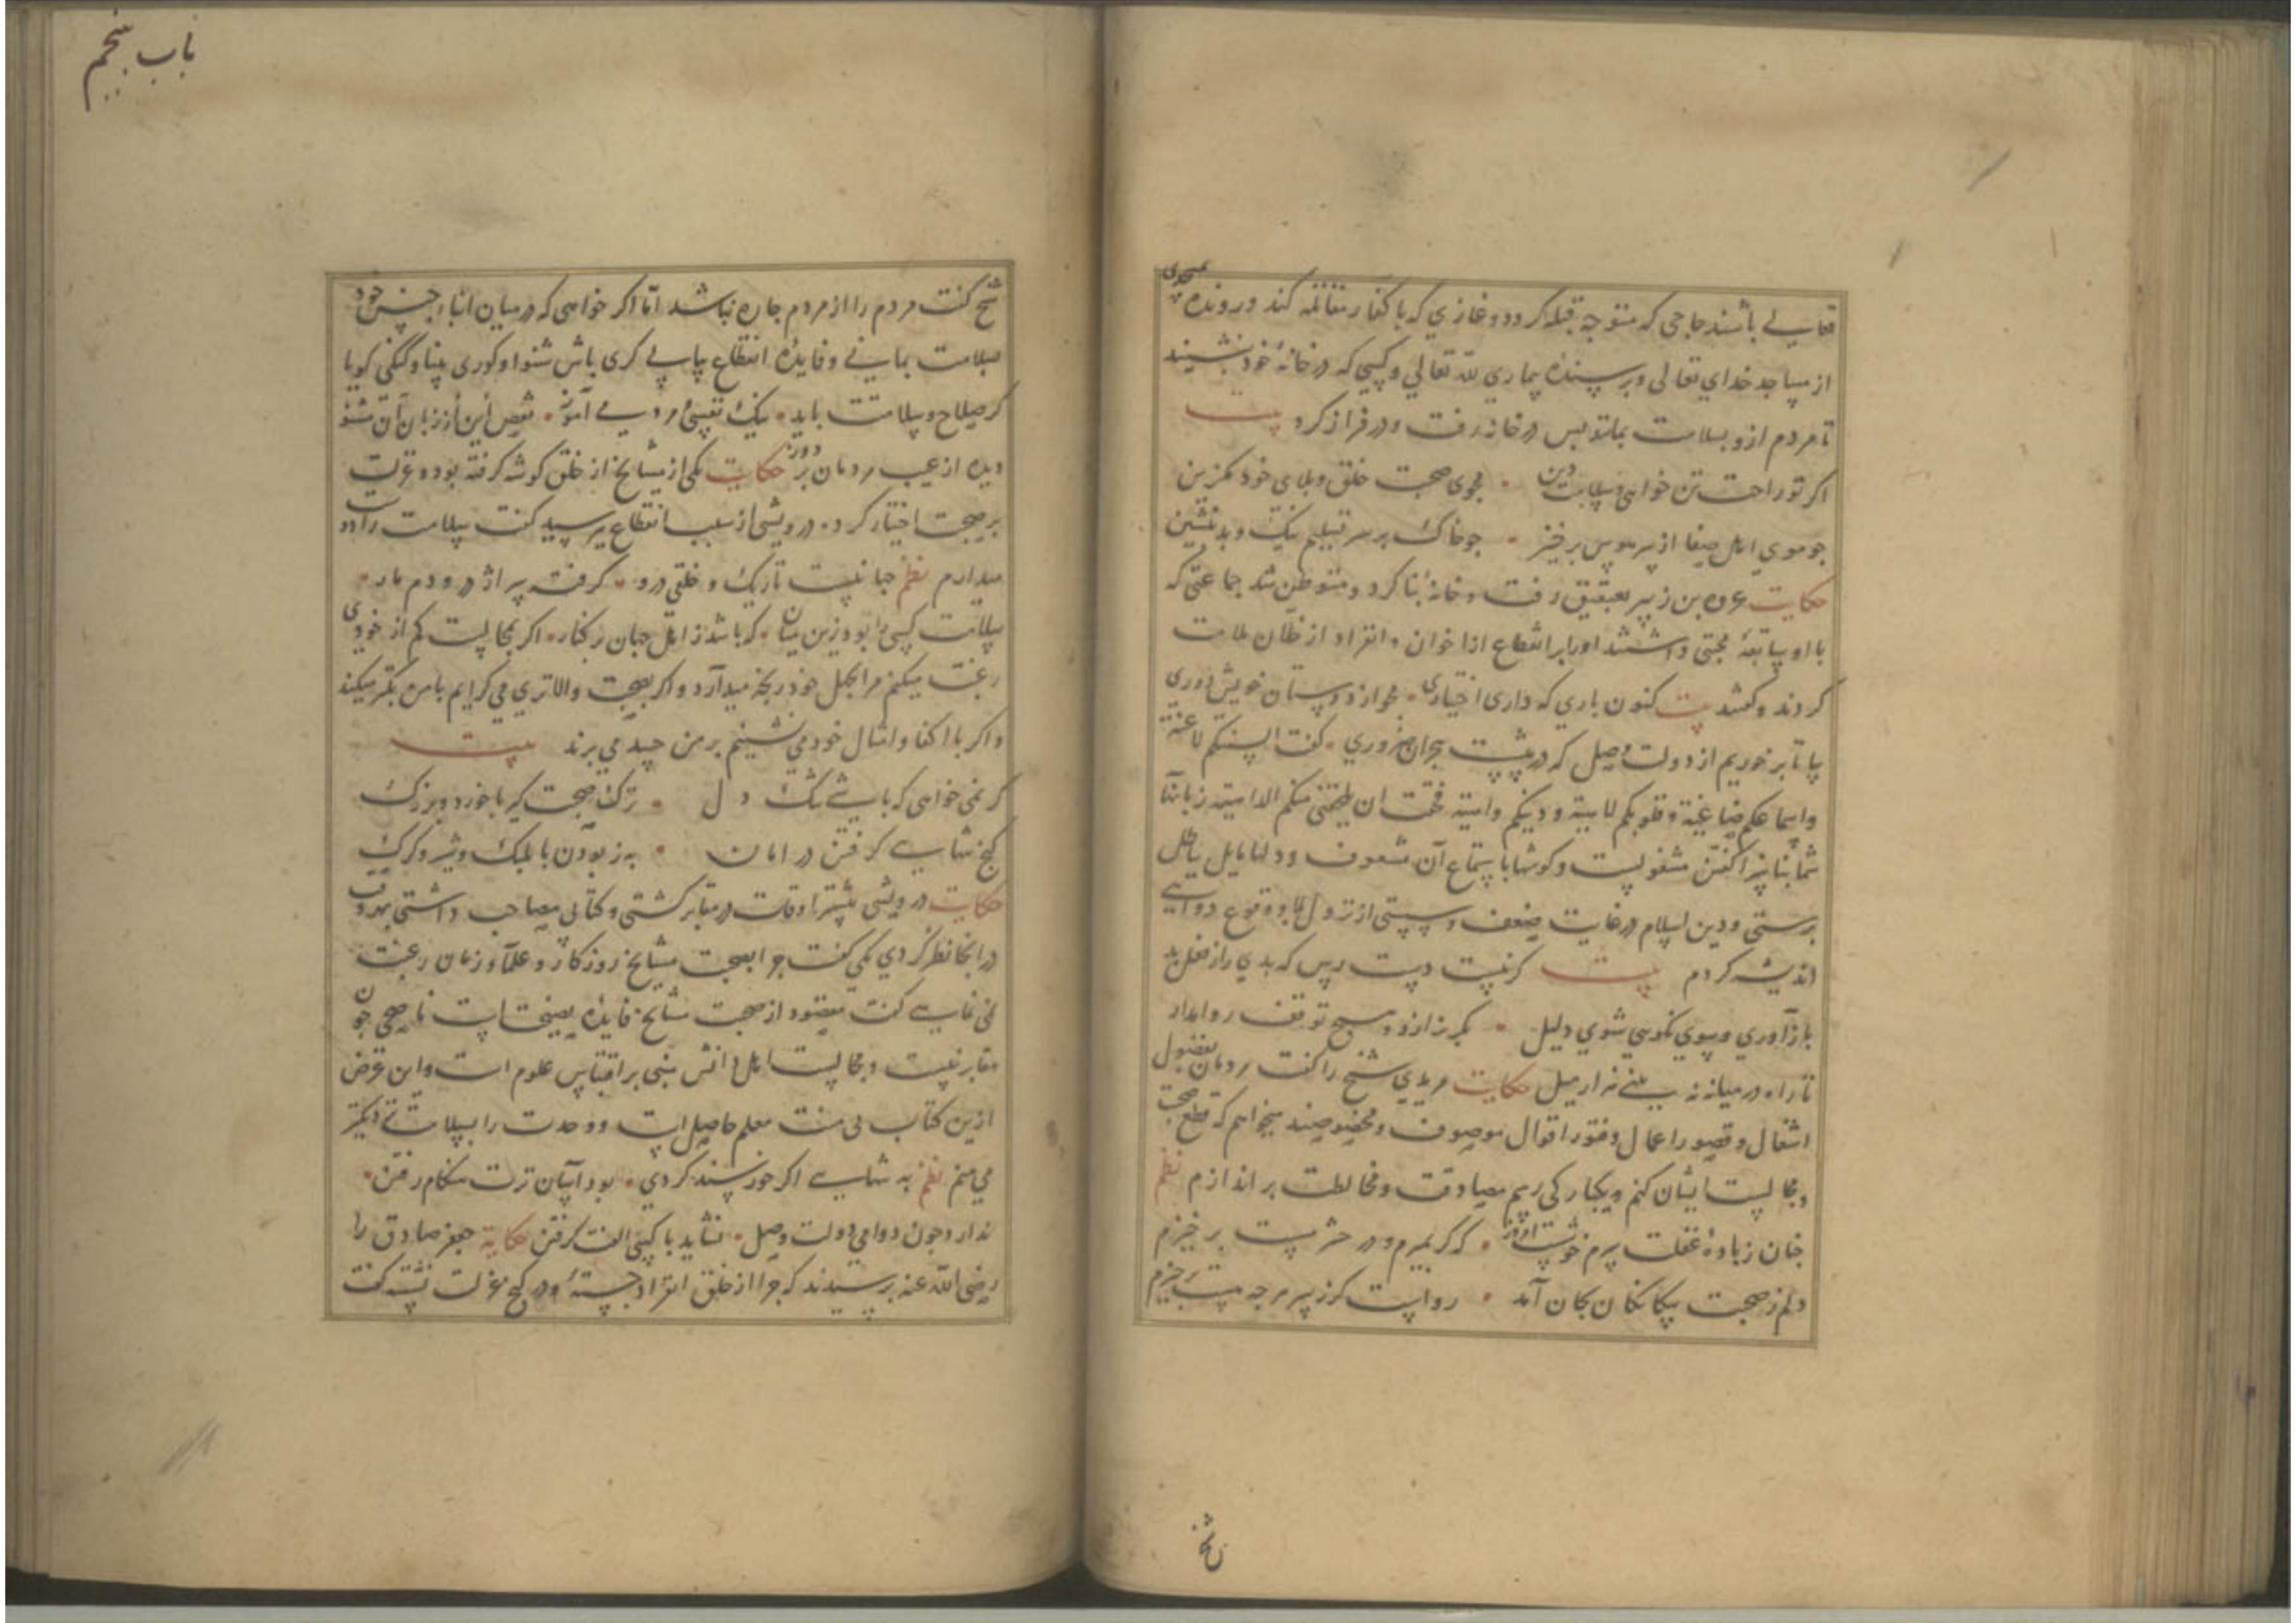 تعالی باشند حاجی که متوجه قبله کردد و غازی که با کفار مقاتله کند و رونده بسوی
از مساجد خدای تعالی و پرسنده بیماری لله تعالی و کسی که در خانهٔ خود نشیند
تا مردم ازو بسلامت بمانند پس در خانه رفت و در فراز کرد بیت
اکر تو راحت تن خواهی و سلامت دین • مجوی صحبت خلق و بلای خود مکزین
جو موی اهل صفا از سر هوس برخیز • جو خاک بر سر تسلیم نیک و بد بنشین
حکایت عروه بن زبیر بعقیق رفت و خانهٔ بنا کرد و متوطن شد جماعتی که
با او سابقهٔ محبتی داشتند اورا بر انقطاع از اخوان و انفراد از خلان ملامت
کردند و کفتند بیت کنون باری که داری اختیاری • مجو از دوستان خویش دوری
بیا تا بر خوریم از دولت وصل که در پیشست هجران ضروری • کفت السنتکم لاغیة
و اسماعکم صاغیة و قلوبکم لاهیة و دینکم واهیة فخفت ان یلحقنی منکم الداهیة زبانهای
شما بناسزا کفتن مشغولست و کوشها باستماع آن مشعوف و دلها مایل باطل
پرستی و دین اسلام در غایت ضعف و سستی از نزول بلا و وقوع دواهی
اندیشه کردم بیت کرنیست دست رس که بدی را ز فعل بد
باز آوری و بسوی نکویی شوی دلیل • بکریز ازو و هیچ توقف روا مدار
تا راه در میانه نه بینی هزار میل حکایت مریدی شیخ را کفت مردمان بفضول
اشغال و قصور اعمال و فتور اقوال موصوف و مخصوصند میخواهم که قطع صحبت
و مجالست ایشان کنم و یکبارکی رسم مصادقت و مخالطت براندازم نظم
جنان ز بادهٔ غفلت سرم خوشست امروز • که کر بمیرم و در حشر مست برخیزم
دلم ز صحبت بیکانکان بجان آمد • رواست کر ز سر هرجه هست برخیزم
شیخ
باب پنجم
شیخ کفت مردم را از مردم جاره نباشد اما اکر خواهی که در میان ابناء جنس خود
بسلامت بمانی و فایدهٔ انقطاع بیابی کری باش شنوا و کوری بینا و کنکی کویا
کر صلاح و سلامتت باید • یک نصیحت ز رودمی آموز • نقص این از زبان آن مشنو
دیده از عیب مردمان بر دوز حکایت یکی از مشایخ از خلق کوشه کرفته بود و عزلت
بر صحبت اختیار کرده درویشی از سبب انقطاع پرسید کفت سلامت را دوست
میدارم نظم جهانیست تاریک و خلقی درو • کرفته سر اژدر و دم مار •
سلامت کسی را بود زین میان • که باشد ز اهل جهان بر کنار • اکر بمجالست کم از خودی
رغبت میکنم مرا بجهل خود رنجه میدارد و اکر بصحبت والاتری می کرایم با من تکبر میکند
و اکر با اکفا و امثال خود می نشینم بر من حسد می برند بیت
کر نمی خواهی که باشی تنک دل • ترک صحبت کیر با خورد و بزرک
کنج تنهایی کرفتن در امان • به ز بودن با پلنک و شیر و کرک
حکایت درویشی بیشتر اوقات در مقابر کشتی و کتابی مصاحب داشتی بهر وقت
در انجا نظر کردی یکی کفت جرا بصحبت مشایخ روزکار و علما و زمان رغبت
نمی نمایی کفت مقصود از صحبت مشایخ فایدهٔ نصیحتست ناصحی جون
مقابر نیست و مجالست اهل دانش مبنی بر اقتباس علوم است و این غرض
ازین کتاب بی منت معلم حاصل است و وحدت را بسلامت نزدیکتر
می بینم نظم به تنهایی اکر خورسند کردی • بود آسان ترت هنکام رفتن •
ندارد جون دوامی دولت وصل • نشاید با کسی الفت کرفتن حکایة جعفر صادق را
رضی الله عنه پرسیدند که جرا از خلق انفراد جستهٔ و در کنج عزلت نشسته کفت